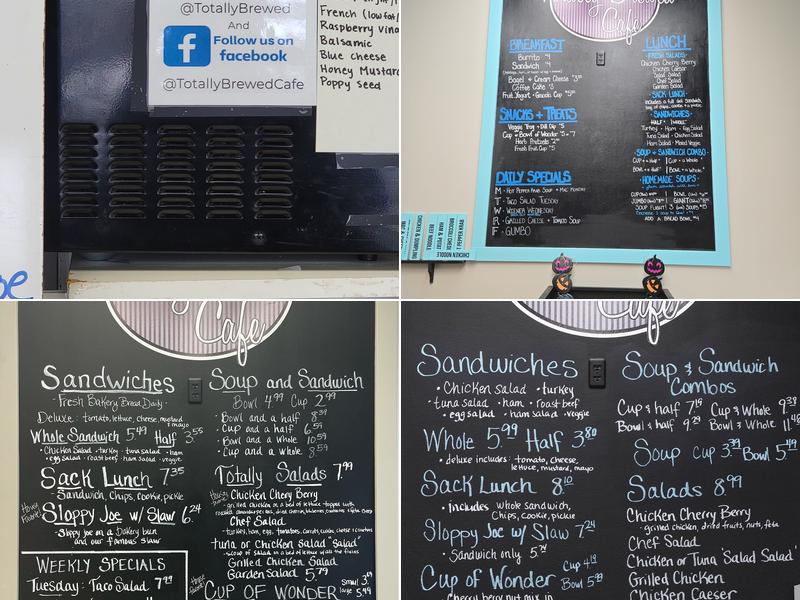 @TotallyBrewed
And
f Follow us on
facebook
@TotallyBrewedCafe
French (lowfat/
Raspberry Vina
Balsamic
Blue cheese
Honey Mustard
Poppy seed
Cafe
BREAKFAST
Burrito
Sandwich
Bagel + Cream Cheese
Coffee Cake
Fruit, Yogurt + Granola Cup
SNACKS + TREATS
Veggie Tray + Dill Dip $5
Cup or Bowl of Wonder $5 + 7
Herb Pretzels
Fresh Fruit Cup $5
DAILY SPECIALS
M - Hot Pepper Pave Soup + Mac Monday
T - Taco Salad Tuesday
W - Weiner Wednesday
R - Grilled Cheese + Tomato Soup
F - GUMBO
LUNCH
FRESH SALADS
Chicken Cherry Berry
Chicken Caesar
Salad Salad
Chef Salad
Garden Salad
SACK LUNCH
SANDWICHES
Turkey · Ham · Egg Salad
Tuna Salad · Chicken Salad
Ham Salad · Mixed Veggie
SOUP + SANDWICH COMBO
HOMEMADE SOUPS
ADD A BREAD BOWL
CHICKEN & DUMPLING
BEEF NOODLE
HAM & POTATO
BROCCOLI CHEESE
CHICKEN NOODLE
Cafe
Sandwiches
Fresh Bakery Bread Daily
Deluxe: tomato, lettuce, cheese, mustard,
mayo
Whole Sandwich 5.49 Half 3.55
• Chicken Salad · turkey · tuna salad · ham
• egg salad · roast beef · ham salad · veggie
Sack Lunch 7.35
Sandwich, Chips, cookie, pickle
House Favorite!
Sloppy Joe w/ Slaw 6.24
Sloppy Joe on a Bakery bun
and our famous slaw
WEEKLY SPECIALS
Tuesday: Taco Salad 7.99
Soup and Sandwich
Bowl 4.99 Cup 2.99
• Bowl and a half 8.39
• Cup and a half 6.59
• Bowl and a Whole 10.59
• Cup and a Whole 8.59
Totally Salads 7.99
Chicken Chery Berry
Chef Salad
tuna or Chicken Salad "Salad"
Grilled Chicken Salad
Garden Salad 5.79
CUP OF WONDER
Cafe
Sandwiches
• Chicken salad · turkey
• tuna salad · ham · roast beef
• egg salad · ham salad · veggie
Whole 5.99 Half 3.80
• deluxe includes: tomato, cheese,
lettuce, mustard, mayo
Sack Lunch 8.10
• includes whole sandwich,
chips, cookie, pickle
Sloppy Joe w/ Slaw 7.24
• Sandwich only 5.24
Cup of Wonder Cup 4.19
Bowl 5.99
Cherry berry nut mix in
Soup & Sandwich
Combos
Cup & half 7.15 Cup & Whole 9.38
Bowl & half 9.29 Bowl & Whole 11.48
Soup Cup 3.39 Bowl 5.49
Salads 8.99
Chicken Cherry Berry
- grilled chicken, dried fruits, nuts, feta
Chef Salad
Chicken or Tuna 'Salad Salad'
Grilled Chicken
Chicken Caeser